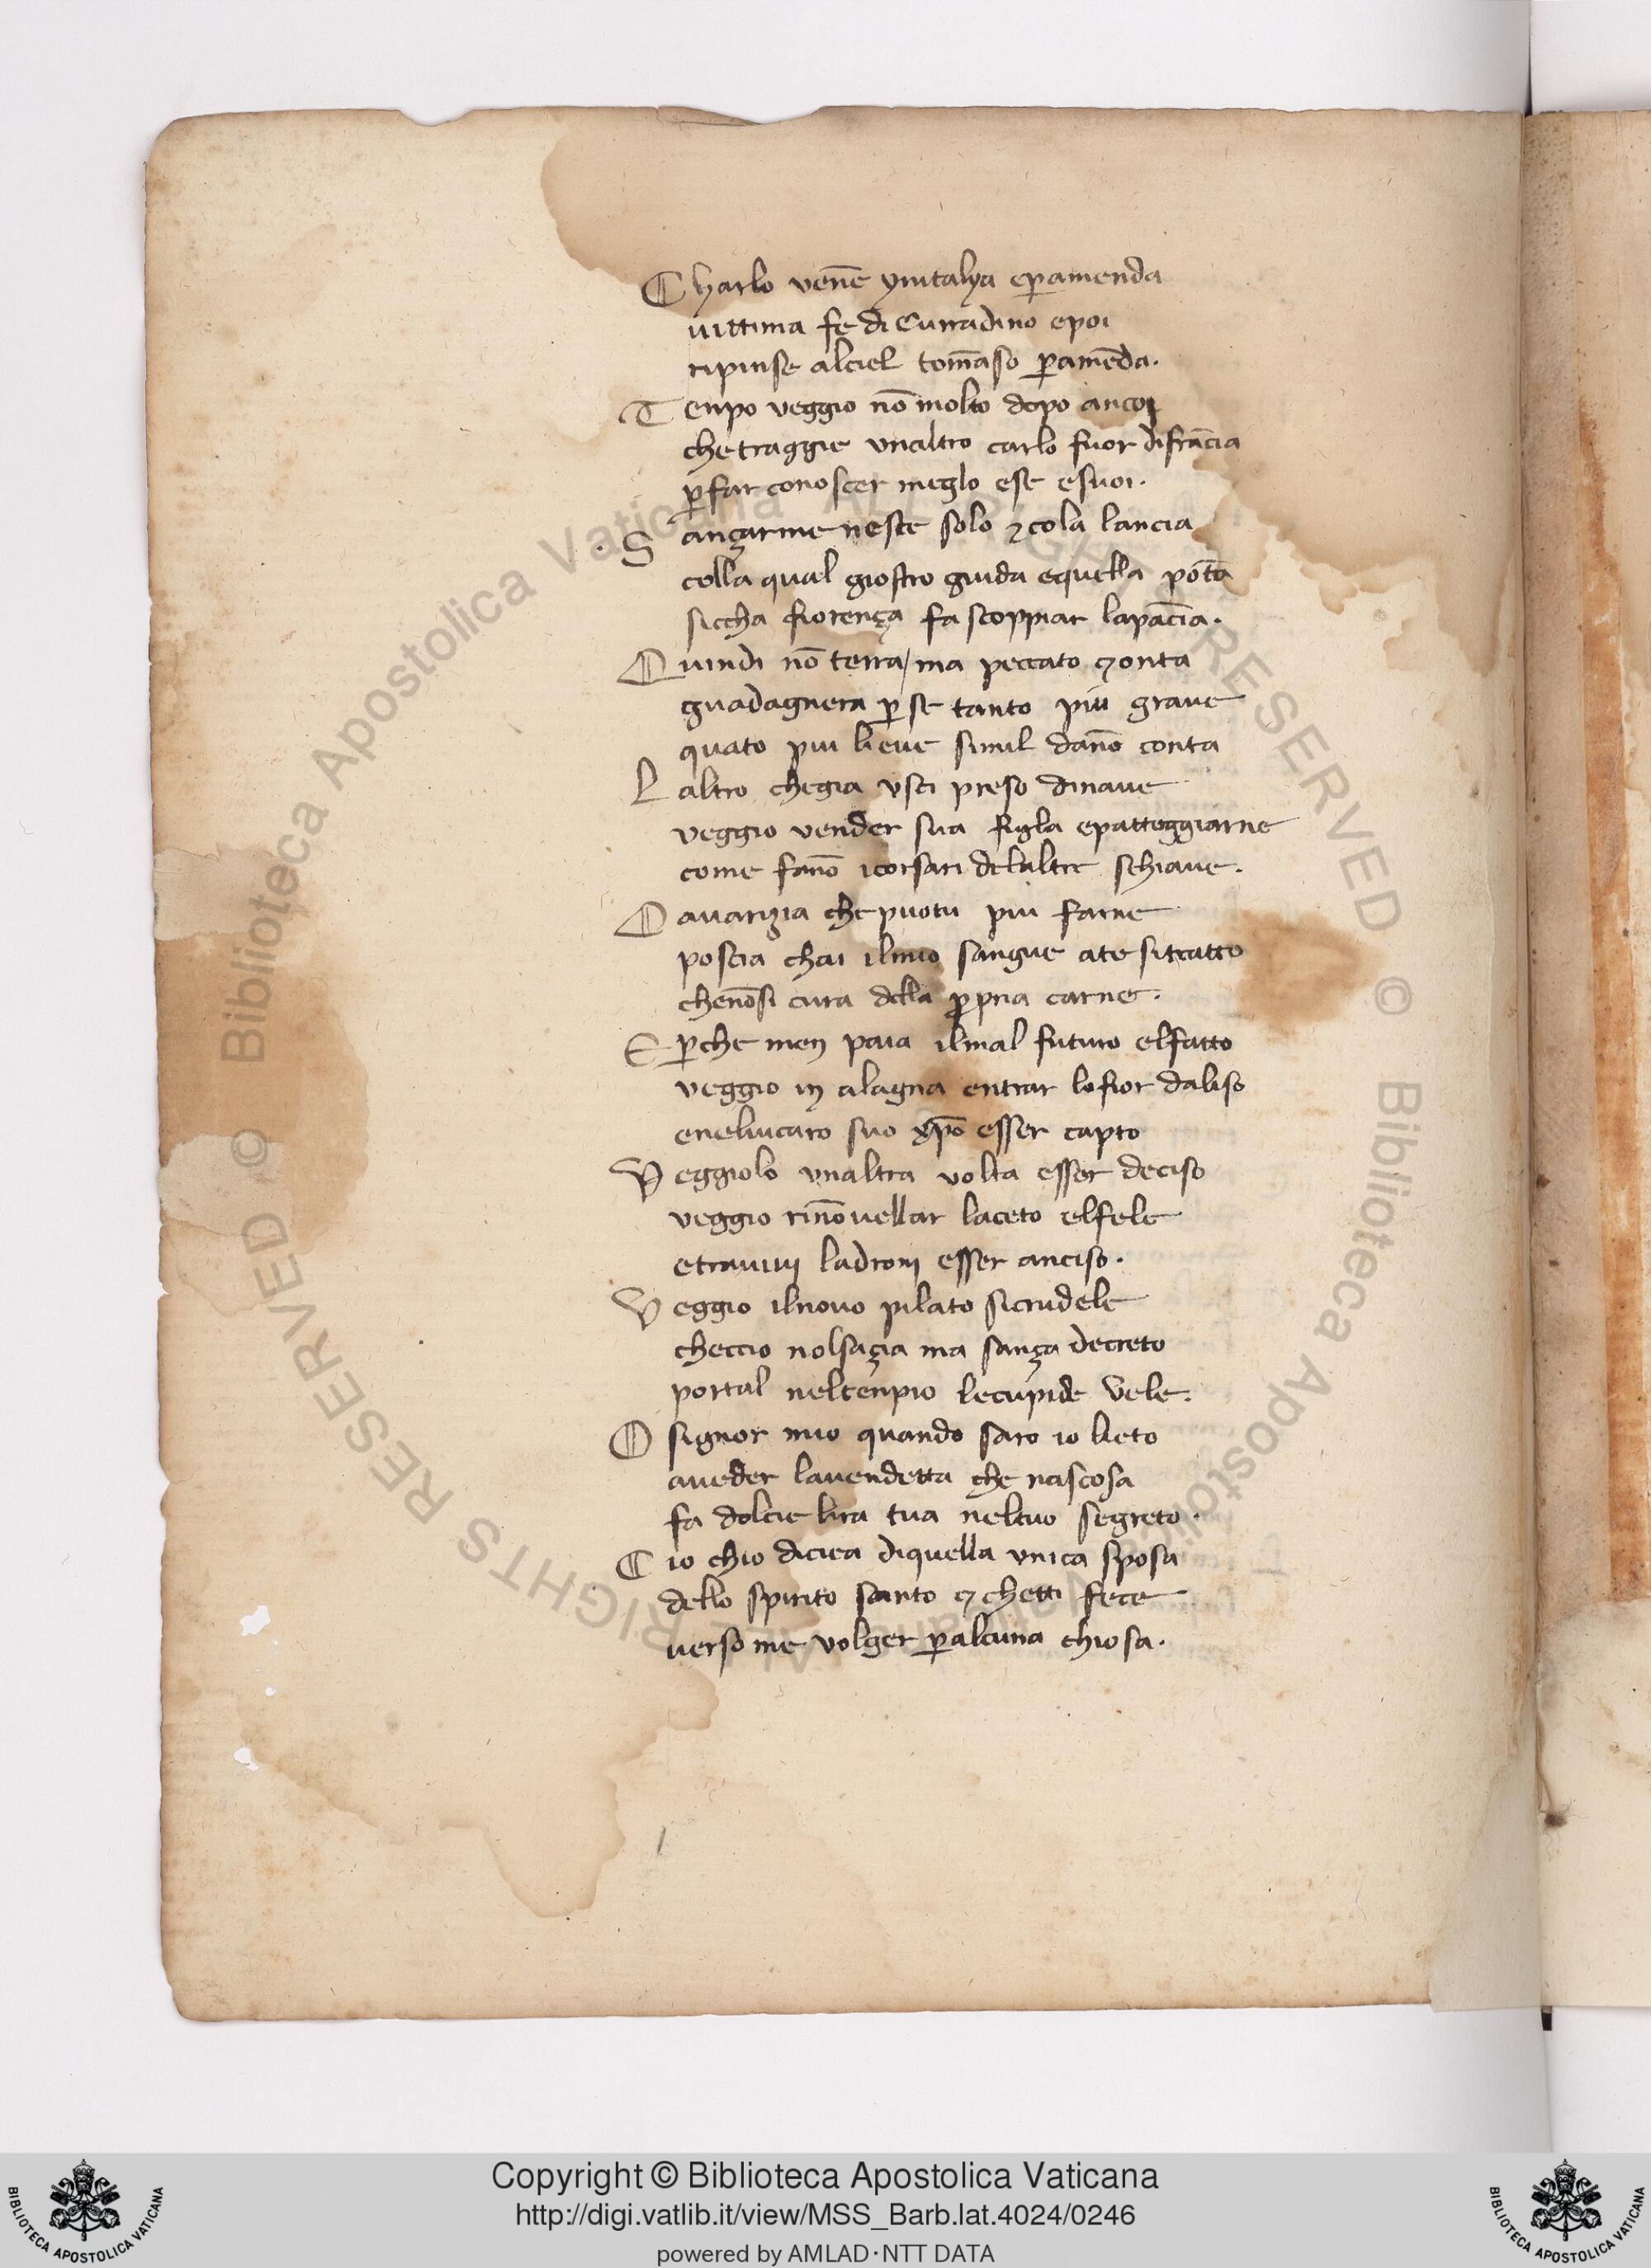 Charlo venē ynitalya eꝑamenda
uittima fe di Curradino epoi
ripinse alciel tom̄aso ꝑamēda.
Tenpo veggio nō molto dopo ancoi
che traggie vnaltro carlo fuor difrācia
ꝑfar conoscer meglo ese esuoi.
Sançarme neste solo ⁊ cola lancia
colla qual giostro giuda equella pōta
siccha fiorença fa scoppiar lapācia.
Quindi nō terra/ma peccato ⁊ onta
guadagnera ꝑ se tanto piu graue
quato piu lieue simil danō conta
Laltro chegia vsci preso dinaue
veggio vender sua figla epatteggiarne
come fanō icorsari delaltre schiaue.
O auarizia che puotu piu farne
poscia chai ilmio sangue ate si tratto
chenōsi cura della ꝓpria carne.
E ꝑche men paia ilmal futuro elfatto
veggio in alagna entrar lofior daliso
eneluicaro suo xp̄o esser capto
Veggiolo vnaltra volta esser deciso
veggio rinōuellar laceto elfele
etrauiui ladroni esser anciso.
Veggio ilnouo pilato sicrudele
checcio nolsaçia ma sança decreto
portal neltenpio lecupide vele.
O signor mio quando saro io lieto
aueder lauendetta che nascosa
fa dolcie lira tua neltuo segreto.
Cio chio diciea diquella vnica sposa
dello spirito santo ⁊ chetti fece
uerso me volger ꝑalcuna chiosa.
Copyright © Biblioteca Apostolica Vaticana
http://digi.vatlib.it/view/MSS_Barb.lat.4024/0246
powered by AMLAD·NTT DATA
BIBLIOTECA APOSTOLICA VATICANA
BIBLIOTECA APOSTOLICA VATICANA